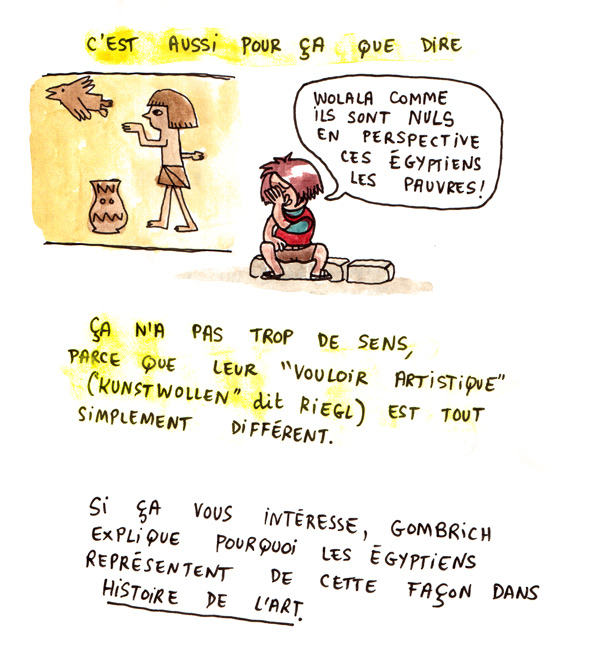 C'EST AUSSI POUR ÇA QUE DIRE
WOLALA COMME
ILS SONT NULS
EN PERSPECTIVE
CES ÉGYPTIENS
LES PAUVRES!
ÇA N'A PAS TROP DE SENS,
PARCE QUE LEUR "VOULOIR ARTISTIQUE"
("KUNSTWOLLEN" dit RIEGL) EST TOUT
SIMPLEMENT DIFFÉRENT.
SI ÇA VOUS INTÉRESSE, GOMBRICH
EXPLIQUE POURQUOI LES ÉGYPTIENS
REPRÉSENTENT DE CETTE FAÇON DANS
HISTOIRE DE L'ART.